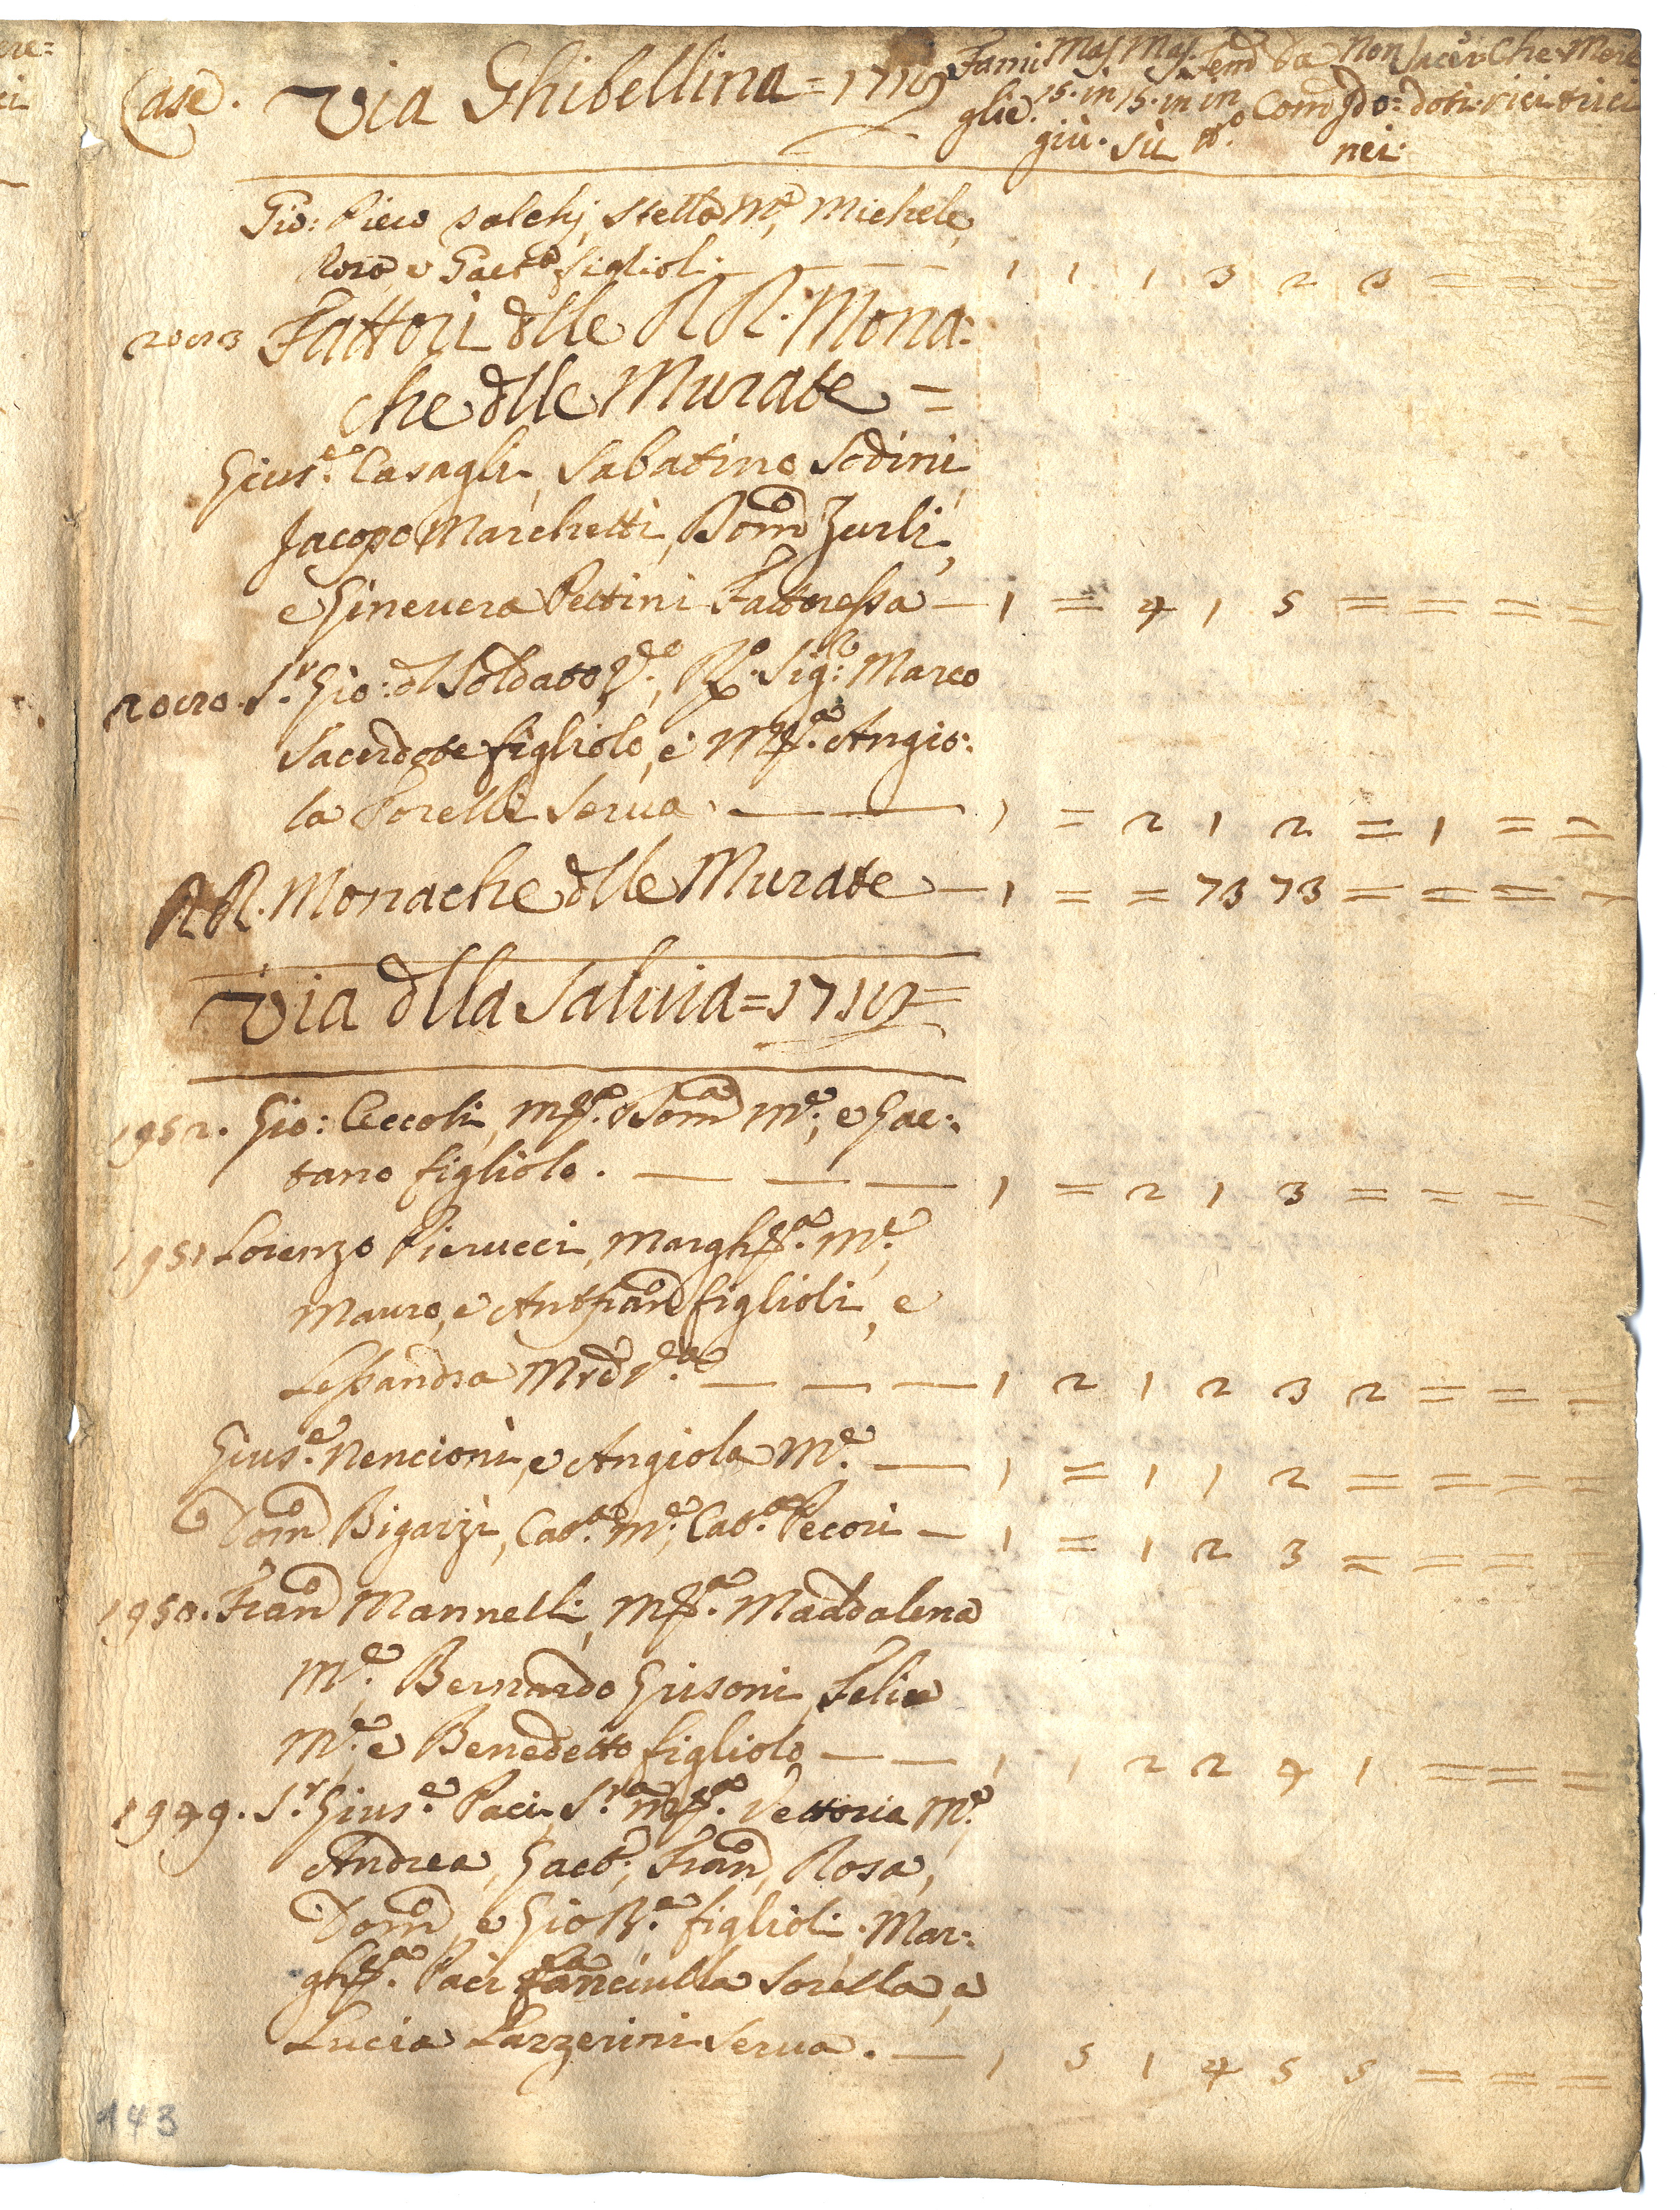 Case. Via Ghibellina = 1719 Fami Mas Mas. Fem Da Non Sacer Che Mere
glie. 15. in 15. in in Com Ido: doti: rici trici
giù. sù n.o nei.
Gio: Piero salchj, Stella M.e, Michele,
Rosa, e Gaet.o figlioli — — — 1 1 1 3 2 3 = = =
Fattori dlle RR. Mona:
che dlle Murate =
Gius.e Casagli, Sabatino Sodini,
Jacopo Marchetti, Dom.o Zurli,
e Gineuera Pettini Fattoressa — 1 = 4 1 5 = = = =
S.r Gio: dl Soldato V.o, R.o Sig.r Marco
Sacerdote figliolo, e M.a Angio:
la Porelli Serua. — — 1 = 2 1 2 = 1 = =
RR. Monache dlle Murate — 1 = = 73 73 = = = =
Via dlla Saluia = 1719 =
1952. Gio: Ceccoli, M.a Dom.a M.e, e Gae:
tano figliolo. — — — 1 = 2 1 3 = = = =
1951 Lorenzo Pierucci, Margh.a M.e,
Mauro, e Ant.Fran.o figlioli, e
Lessandra Mrd V.a — — — 1 2 1 2 3 2 = = =
Gius.e Nencioni, e Angiola M.e — 1 = 1 1 2 = = = =
Dom.o Bigazzi, Cat.a M.e, Cat.a Pecori — 1 = 1 2 3 = = = =
1950. Fran.o Mannelli, M.a Maddalena
M.e, Bernardo Grisoni, Felice
M.e, e Benedetto figliolo — — 1 1 2 2 4 1 = = =
1949. S.r Gius.e Paci, S.ra M.a Vettoria M.e,
Andrea, Gaet.o, Fran.o, Rosa,
Dom.o, e Gio B.a figlioli. Mar:
gh.a Paci fanciulla Sorella, e
Lucia Lazzerini Serua. — 1 5 1 4 5 5 = = =
143